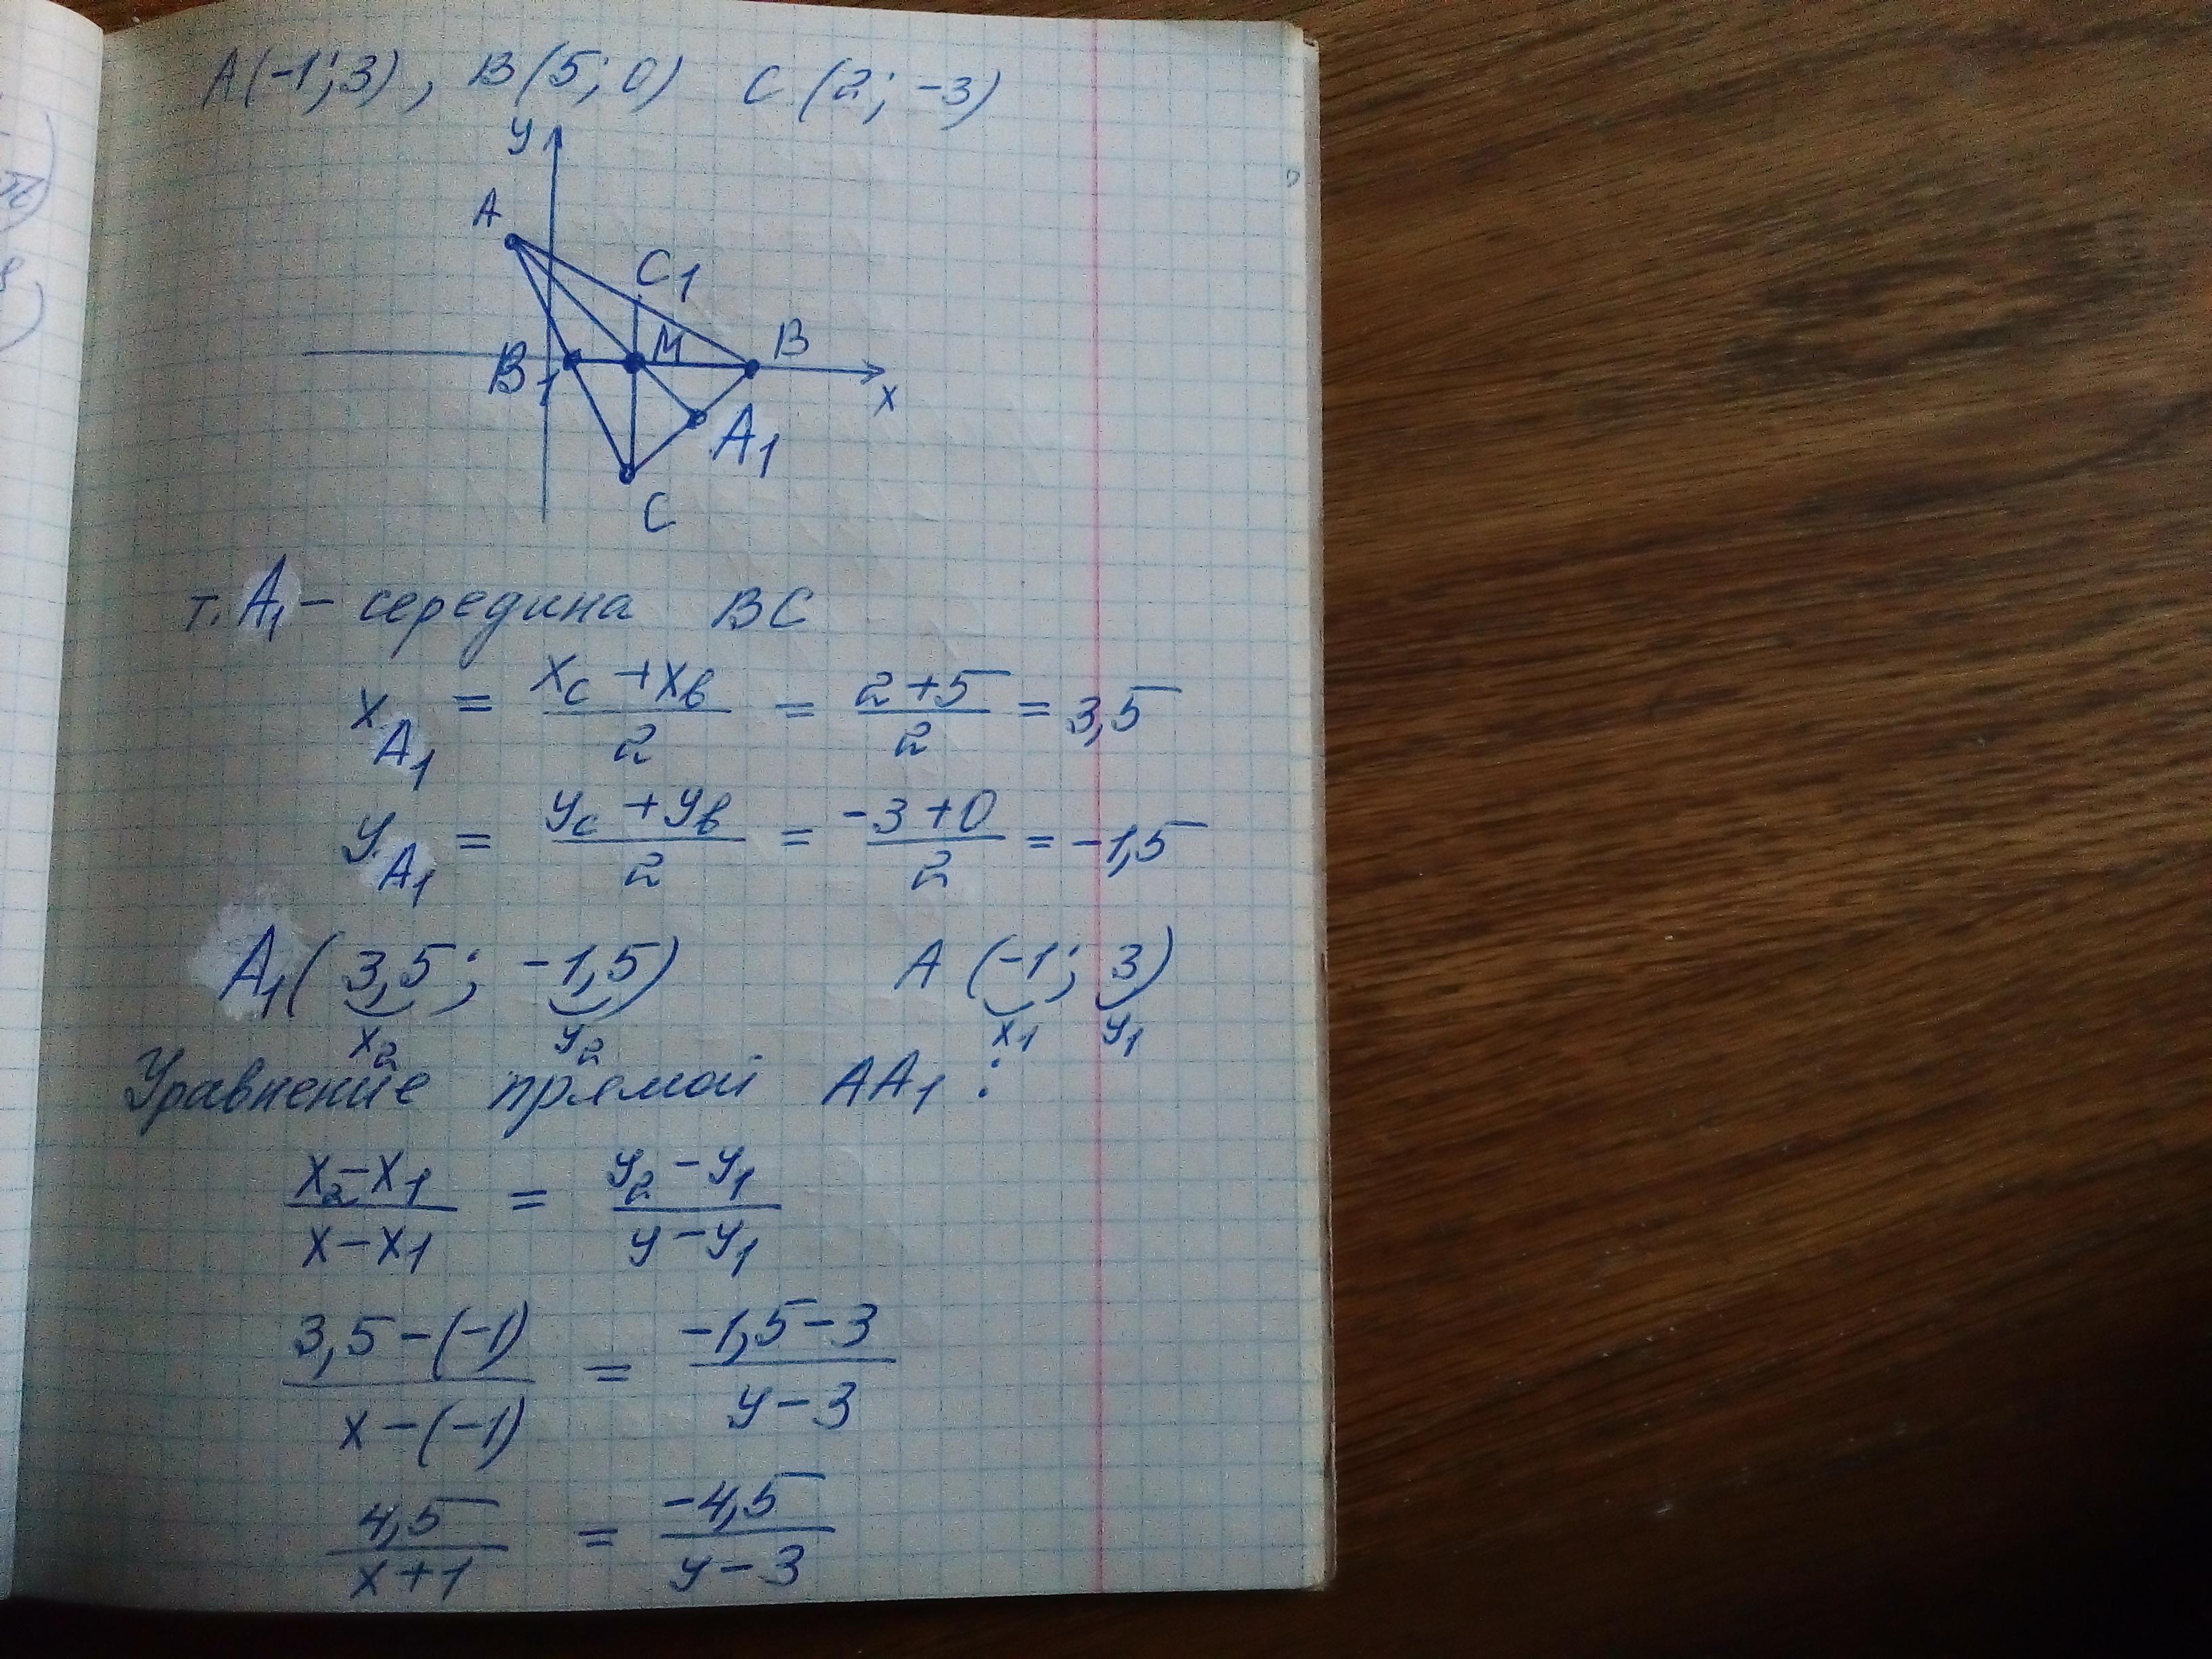 A(-1; 3), B(5; 0) C(2; -3)
y
A
C₁
M
B
B₁
x
A₁
C
т. A₁ - середина BC
x_A₁ = (x_c + x_в)/2 = (2+5)/2 = 3,5
y_A₁ = (y_c + y_в)/2 = (-3+0)/2 = -1,5
A₁(3,5; -1,5) A(-1; 3)
x₂ y₂ x₁ y₁
Уравнение прямой AA₁:
(x₂-x₁)/(x-x₁) = (y₂-y₁)/(y-y₁)
(3,5-(-1))/(x-(-1)) = (-1,5-3)/(y-3)
4,5/(x+1) = -4,5/(y-3)